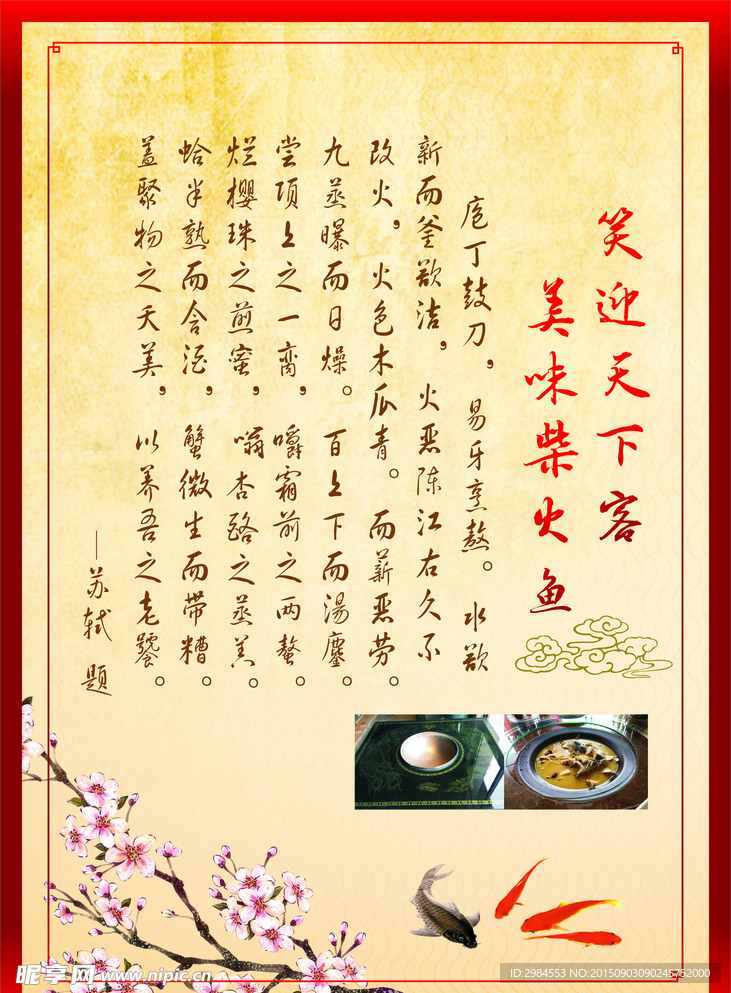 笑迎天下客
美味柴火鱼
庖丁鼓刀，易牙烹熬。水欲
新而釜欲洁，火恶陈江右久不
改火，火色木瓜青。而薪恶劳。
九蒸曝而日燥。百上下而汤鏖。
尝项上之一脔，嚼霜前之两螯。
烂樱珠之煎蜜，嗡杏酪之蒸羔。
蛤半熟而含酒，蟹微生而带糟。
盖聚物之夭美，以养吾之老饕。
—苏轼 题
昵享网 www.nipic.cn
ID:2984553 NO:20150903090245752000